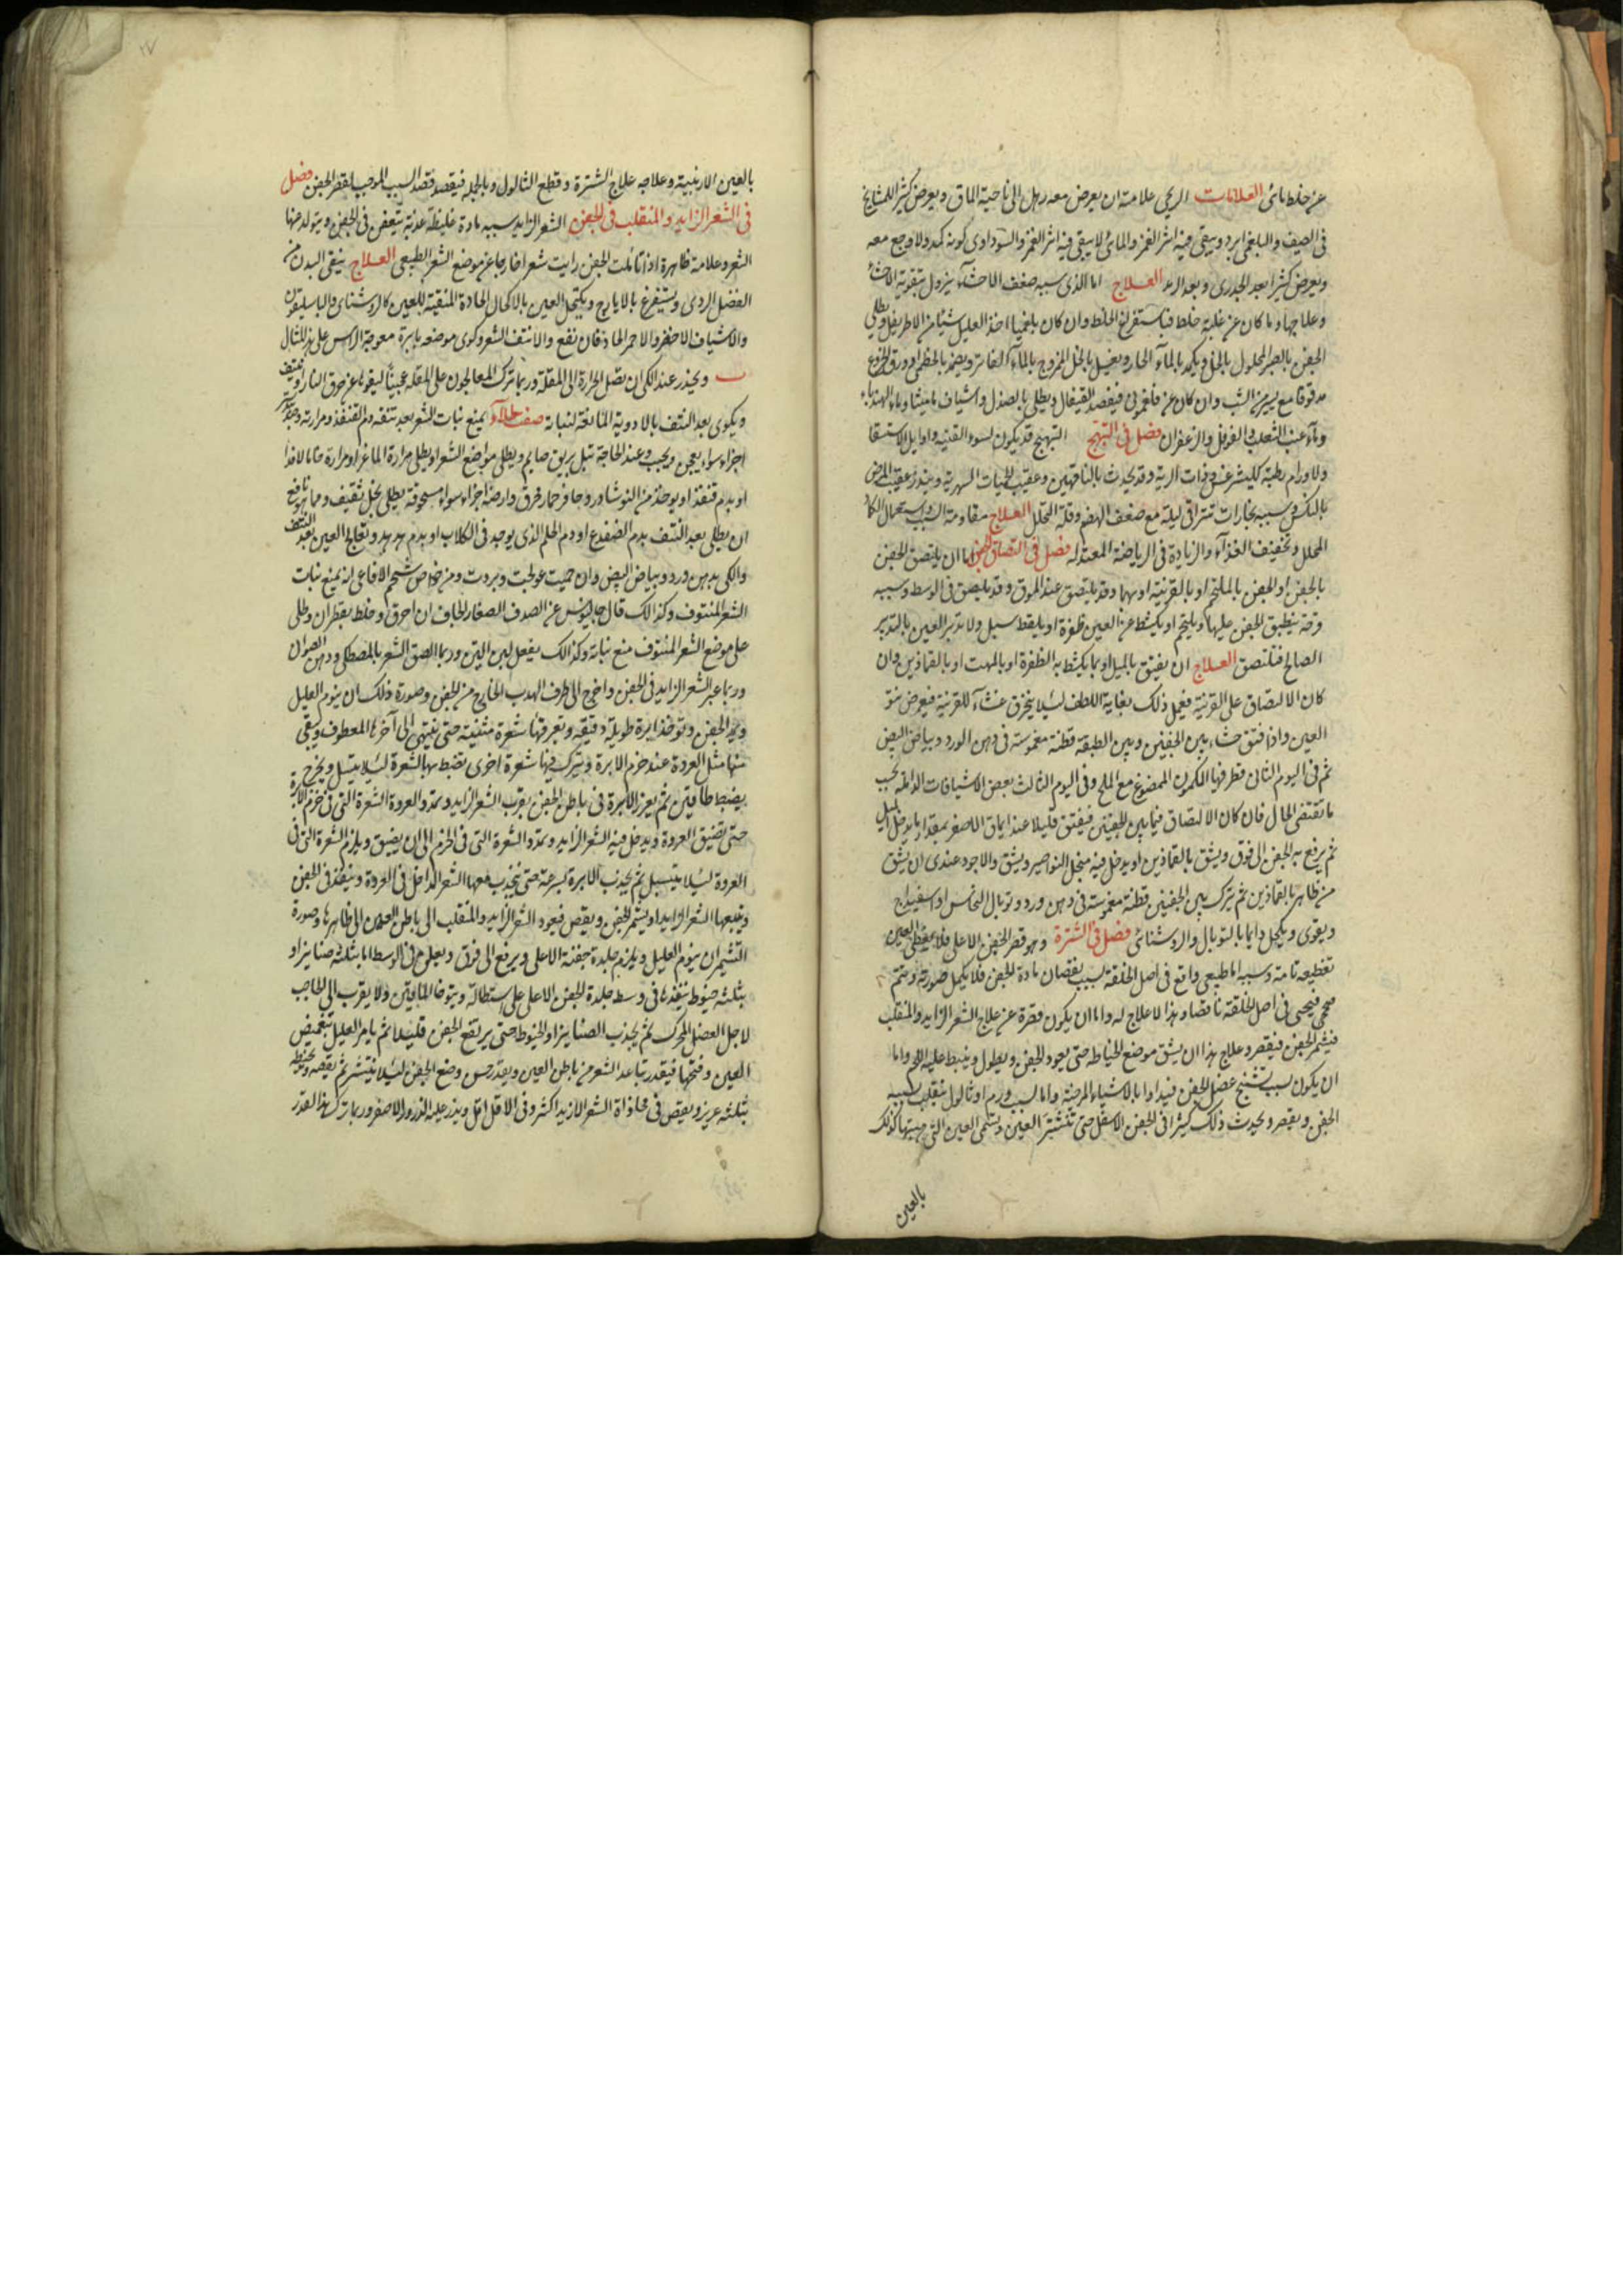 عن خلط مائى العلامات الريحى علامته ان يعرض معه رهل الى ناحية الماق ويعرض كثيرا للمشايخ
فى الصيف والبلغمى ابرد ويبقى فيه اثر الغمز والمائى لا يبقى فيه اثر الغمز والسوداوى كونه كمد ولا وجع معه
ويعرض كثيرا بعد الجدرى وبعد الرمد العلاج اما الذى سببه ضعف الاحشاء يزول بتقوية الاحشاء
وعلاجها وما كان عن غلبة خلط فباستفراغ الخلط وان كان بلغميا اخذ العليل شيئا من الاطريفل ويطلى
الجفن بالصبر المحلول بالخل ويكمد بالماء الحار ويغسل بالخل الممزوج بالماء الفاتر ويضمد بالخطمى وورق الخروع
مدقوقا مع يسير من الشب وان كان عن فلغمونى فيفصد القيفال ويطلى بالصندل واشياف ماميثا وماء الهندباء
وماء عنب الثعلب والفوفل والزعفران فصل فى التهيج التهيج قد يكون لسوء القنية واوايل الاستسقا
ولاورام رطبة كليثرغس وذات الرية وقد يحدث بالناقهين وعقيب الحميات السهرية وينذر عقيب المرض
بالنكس وسببه بخارات تتراقى ليلة مع ضعف الهضم وقلة التحلل العلاج مقاومة السبب واستعمال الكماد
المحلل وتخفيف الغذاء والزيادة فى الرياضة المعتدله فصل فى التصاق الجفن اما ان يلتصق الجفن
بالجفن او الجفن بالملتحم او بالقرنية او بهما وقد يلتصق عند الموق وقد يلصق فى الوسط وسببه
قرحة ينطبق الجفن عليها ويلتحم او يكشط عن العين ظفرة او يلقط سبل ولا تدبر العين بالتدبير
الصالح فتلتصق العلاج ان يفتق بالميل او بما يكشط به الظفرة او بالمهت او بالقمادين وان
كان الالتصاق على القرنية فيعمل ذلك بغاية اللطف لئيلا ينخرق غشاء للقرنية فيعرض نتو
العين واذا فتق حشاء بين الجفنين وبين الطبقة قطنة مغموسة فى دهن الورد وبياض البيض
ثم فى اليوم الثانى قطر فيها الكمون الممضوغ مع الملح وفى اليوم الثالث بعض الاشيافات الدامله بحسب
ما تقتضى الحال فان كان الالتصاق فيما بين الجفنين فيفتق قليلا عند اماق الاصغر بمقدار ما يدخل الميل
ثم يرفع به الجفن الى فوق ويشق بالقمادين او يدخل فيه منجل النواصير ويشق والاجود عندى ان يشق
من ظاهر بالقمادين ثم يترك بين الجفنين قطنة مغموسة فى دهن ورد وتوبال النحاس او اسفيداج
ويقوى ويكحل دايما بالتوبال والروشنائى فصل فى الشترة وهو قصر الجفن الاعلى فلا يغطى العين
تغطيه تامة وسببه اما طبيعى واقع فى اصل الخلقة بسبب نقصان مادة الجفن فلا يكمل صورته ويتم
فيجى فى اصل الخلقة ناقصا وهذا لا علاج له واما ان يكون قصره عن علاج الشعر الزايد والمنقلب
فيشمر الجفن فيقصر وعلاج هذا ان يشق موضع الخياطه حتى يعود الجفن ويطول وينبط عليه اللحم واما
ان يكون بسبب تشنج عضل الجفن فيداوا بالاشياء المرخية واما لسبب ورم او ثالول ينقلب بسببه
الجفن ويقصر ويحدث ذلك كثيرا فى الجفن الاسفل حتى تنشتر العين وتسمى العين التى هييتها كذلك
بالعين
بالعين الارنبية وعلاجه علاج الشترة وقطع الثالول وبالجمله فيقصد قصد السبب الموجب لقصر الجفن فصل
فى الشعر الزايد والمنقلب فى الجفن الشعر الزايد سببه مادة غليظة عفنة تتعفن فى الجفن ويتولد منها
الشعر وعلامة ظاهرة اذا تاملت الجفن رايت شعرا خارجا عن موضع الشعر الطبيعى العلاج ينقى البدن من
الفضل الردى ويستفرغ بالايارج ويكتحل العين بالاكحال الحادة المنقية للعين كالروشناى والباسليقون
والاشياف الاخضر والاحمر الحاد فان نفع والا نتف الشعر وكوى موضعه بابرة معوجة الراس على هذا المثال
ويحذر عند الكى ان تصل الحرارة الى المقلة وربما ترك المعالجون على المقله عجينا ليقوها عن حرق النار وينتف
ويكوى بعد النتف بالادوية المانعة لنباته صفة طلاء يمنع نبات الشعر بعد نتفه دم القنفذ ومرارته وجندبيدستر
اجزاء سواء يعجن ويحبب وعند الحاجة تبل بريق صايم ويطلى مواضع الشعر او يطلى مرارة الماعز او مرارة خامالاذا
او بدم قنفذ او يوخذ من النوشادر وحافر حمار محرق وارضة اجزاء سواء مسحوقة يطلى بخل ثقيف ومما هو نافع
ان يطلى بعد النتف بدم الضفدع او دم الحلم الذى يوجد فى الكلاب او بدم هدهد وتعالج العين بعد النتف
والكى بدهن ورد وبياض البيض وان حميت عولجت وبردت ومن خواص شحم الافاعى انه يمنع نبات
الشعر المنتوف وكذالك قال جالينوس عن الصدف الصغار الجاف ان احرق وخلط بقطران وطلى
على موضع الشعر المنتوف منع نباته وكذالك يفعل لبن التين وربما الصق الشعر بالمصطكى ودهن الصوان
وربما عبر الشعر الزايد فى الجفن واخرج الى طرف الهدب الخارج من الجفن وصورة ذلك ان ينوم العليل
ويمد الجفن وتوخذ ابرة طويلة دقيقه وتعر فيها شعرة مثنية حتى ينتهى الى آخرها المعطوف ويبقى
منها مثل العروة عند خرم الابرة ويترك فيها شعرة اخرى تضبط بها الشعرة لئيلا ينسل ويخرج
يضبط طاقتين ثم يغرز الابرة فى باطن الجفن بقرب الشعر الزايد وتمد والعروة الشعرة التى فى خرم الابرة
حتى تضيق العروة ويدخل فيه الشعر الزايد وتمد والشعرة التى فى الخرم الى ان يضيق ويلزم الشعرة التى فى
العروة لئيلا ينسل ثم يجذب الابرة بسرعة حتى ينجذب معها الشعر الداخل فى العروة وينفذ فى الجفن
ويتبعها الشعر الزايد او يشمر الجفن ويقص فيعود الشعر الزايد والمنقلب الى باطن العين الى ظاهرها وصورة
التشمير ان ينوم العليل ويلزم جلدة جفنة الاعلى ويرفع الى فوق ويعلم فى الوسط اما بثلثه صنانيراو
بثلثه خيوط ينفذها فى وسط جلدة الجفن الاعلى على استطالة ويتوقا الماقين ولا يقرب الى الحاجب
لاجل العضل المحرك ثم يجذب الصنانيراو الخيوط حتى يرتفع الجفن قليلا ثم يامر العليل بتغميض
العين وفتحها فيقدر تباعد الشعر من باطن العين ويقدر حسن وضع الجفن لئيلا ينشتر ثم يقصه ويخيطه
بثلثه غريز ويقص فى محاذاة الشعر الازيد اكثر وفى الاقل اقل ويذر عليه الذرور الاصفر وربما ترك هذا القدر